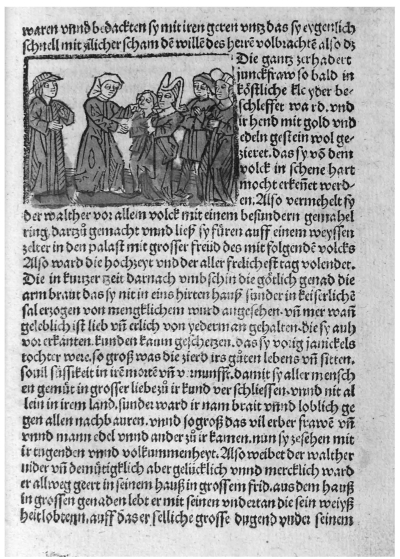 waren vnnd bedackten sy mit iren geren vntz das sy eygenlich
schnell mit zilicher scham dē willē des herrē volbrachtē also dz
Die gantz zerhadert
junckfraw so bald in
köstliche kleyder be-
schleffer ward. vnd
ir hend mit gold vnd
edeln gestein wol ge-
zieret. das sy vō dem
volck in schene hart
mocht erkēnet werd-
en. Also vermehelt sy
der walther vor allem volck mit einem besundern gemahel
ring. dartzů gemacht vnnd ließ sy fůren auff einem weyssen
zelter in den palast mit grosser freüd des mit folgendē volcks
Also ward die hochzeyt vnd der aller frelichest tag volendet.
Die in kurtzer zeit darnach vmbschin die götlich genad die
arm braut das sy nit in eins hirten hauß sunder in keiserlichē
sal erzogen von mengklichem wurd angesehen. vn̄ mer wan̄
geleblich ist lieb vn̄ erlich von yederman gehalten. die sy auh
vor erkanten. kunden kaum geschetzen. das sy vorig janickels
tochter were. so groß was die zierd irs gůten lebens vn̄ sitten.
souil sússikeit in irē wortē vn̄ vernunfft. damit sy aller mensch
en gemút in grosser liebe zů ir kund ver schliessen. vnnd nit al
lein in irem land. sunder ward ir nam brait vnnd loblich ge
gen allen nachbauren. vnnd so groß das vil erber frawē vn̄
vnnd mann edel vnnd ander zů ir kamen. nun sy zesehen mit
ir tugenden vnnd volkummenheyt. Also weibet der walther
nider vn̄ demútigklich aber gelúcklich vnnd mercklich ward
er allweg geert in seinem hauß in grossem frid. aus dem hauß
in grossen genaden lebt er mit seinen vndertan die sein weiyß
heit lobtenn. auff das erselliche grosse dugend vnder seinem